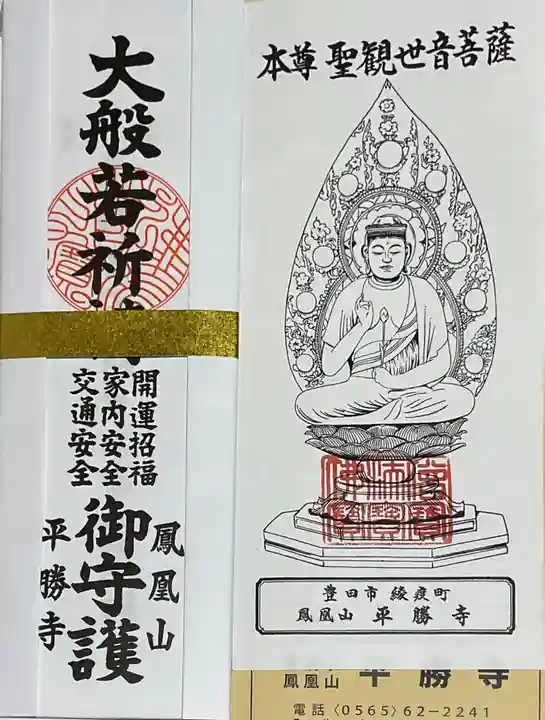 大般若祈
開運招福
家内安全
交通安全
御守護
鳳凰山
平勝寺
本尊 聖観世音菩薩
豊田市 綾渡町
鳳凰山 平勝寺
鳳凰山 平勝寺
電話〈0565〉62-2241